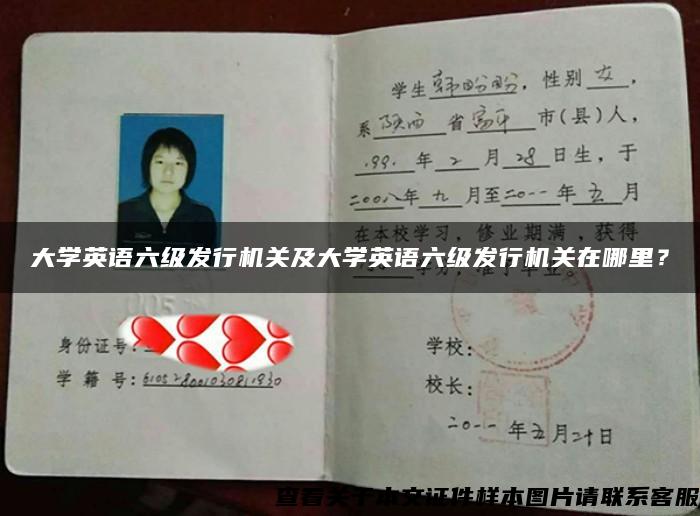 学生韩盼盼，性别女，
系陕西省富平市(县)人，
.991.年2月28日生，于
二00八年九月至二0一一年五月
在本校学习，修业期满，获得
大学英语六级发行机关及大学英语六级发行机关在哪里？
身份证号：
学籍号：
学校：
校长：
二0一一年五月二十日
查看关于本文证件样本图片请联系客服